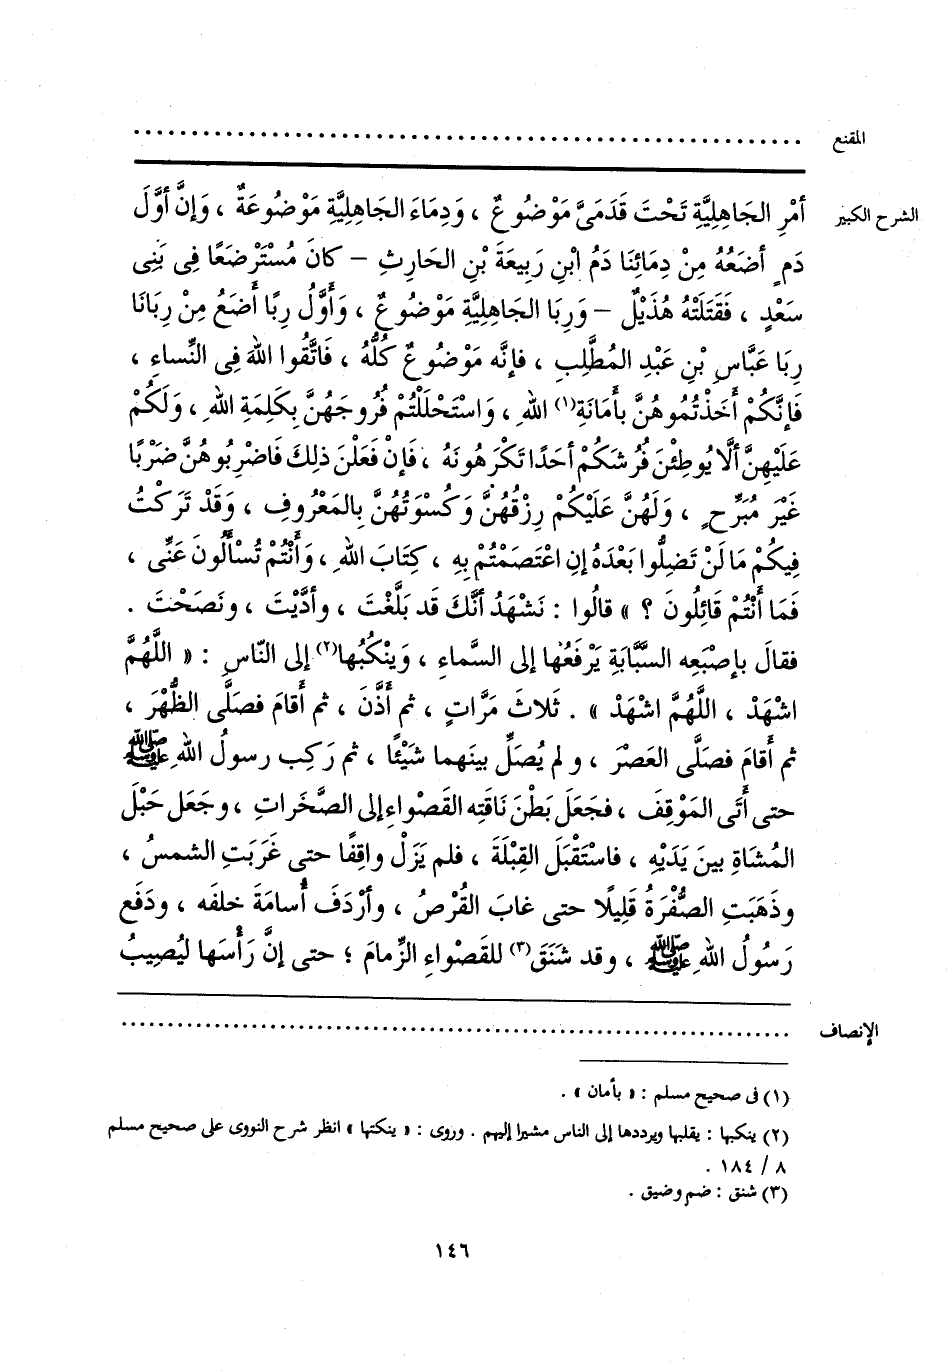 المقنع ................................................
الشرح الكبير
أمْرِ الجَاهِلِيَّةِ تَحْتَ قَدَمَىَّ مَوْضُوعٌ ، وَدِمَاءَ الجَاهِلِيَّةِ مَوْضُوعَةٌ ، وَإنَّ أوَّلَ
دَمٍ أضَعُهُ مِنْ دِمَائِنَا دَمُ ابْنِ رَبِيعَةَ بْنِ الحَارِثِ – كانَ مُسْتَرْضَعًا فِى بَنِى
سَعْدٍ ، فَقَتَلَتْهُ هُذَيْلٌ – وَرِبَا الجَاهِلِيَّةِ مَوْضُوعٌ ، وَأَوَّلُ رِبًا أَضَعُ مِنْ رِبَانَا
رِبَا عَبَّاسِ بْنِ عَبْدِ المُطَّلِبِ ، فإنَّه مَوْضُوعٌ كُلُّهُ ، فَاتَّقُوا اللهَ فِى النِّساءِ ،
فَإنَّكُمْ أَخَذْتُمُوهُنَّ بأَمَانَةِ(١) اللهِ ، وَاسْتَحْلَلْتُمْ فُرُوجَهُنَّ بِكَلِمَةِ اللهِ ، وَلَكُمْ
عَلَيْهِنَّ ألَّا يُوطِئْنَ فُرُشَكُمْ أحَدًا تَكْرَهُونَهُ ، فَإنْ فَعَلْنَ ذلِكَ فَاضْرِبُوهُنَّ ضَرْبًا
غَيْرَ مُبَرِّحٍ ، وَلَهُنَّ عَلَيْكُمْ رِزْقُهُنَّ وَكُسْوَتُهُنَّ بِالمَعْرُوفِ ، وَقَدْ تَرَكْتُ
فِيكُمْ مَا لَنْ تَضِلُّوا بَعْدَهُ إنِ اعْتَصَمْتُمْ بِهِ ، كِتَابَ اللهِ ، وَأَنْتُمْ تُسْأَلُونَ عَنِّى ،
فَمَا أَنْتُمْ قَائِلُونَ ؟ » قالُوا : نَشْهَدُ أنَّكَ قَد بَلَّغْتَ ، وأدَّيْتَ ، ونَصَحْتَ .
فقالَ بإصْبَعِه السَّبَّابَةِ يَرْفَعُها إلى السَّماءِ ، وَيَنْكُبُها(٢) إلى النّاسِ : « اللَّهُمَّ
اشْهَدْ ، اللَّهُمَّ اشْهَدْ » . ثَلاثَ مَرَّاتٍ ، ثم أَذَّنَ ، ثم أَقامَ فصَلَّى الظُّهْرَ ،
ثم أَقامَ فصَلَّى العَصْرَ ، ولم يُصَلِّ بينَهما شَيْئًا ، ثم رَكِب رسولُ اللهِ ﷺ
حتى أَتَى المَوْقِفَ ، فجَعَلَ بَطْنَ نَاقَتِه القَصْواءِ إلى الصَّخَراتِ ، وجَعَل حَبْلَ
المُشَاةِ بينَ يَدَيْهِ ، فاسْتَقْبَلَ القِبْلَةَ ، فلم يَزَلْ واقِفًا حتى غَرَبَتِ الشمسُ ،
وذَهَبَتِ الصُّفْرَةُ قَلِيلًا حتى غابَ القُرْصُ ، وأرْدَفَ أُسامَةَ خلفَه ، ودَفَع
رَسُولُ اللهِ ﷺ ، وقد شَنَقَ(٣) للقَصْواءِ الزِّمامَ ؛ حتى إنَّ رَأْسَها ليُصِيبُ
الإنصاف ................................................
(١) فى صحيح مسلم : « بأمان » .
(٢) ينكبها : يقلبها ويرددها إلى الناس مشيرا إليهم . وروى : « ينكتها » انظر شرح النووى على صحيح مسلم
٨ / ١٨٤ .
(٣) شنق : ضم وضيق .
١٤٦